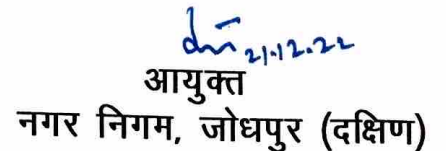 21.12.22
आयुक्त
नगर निगम, जोधपुर (दक्षिण)